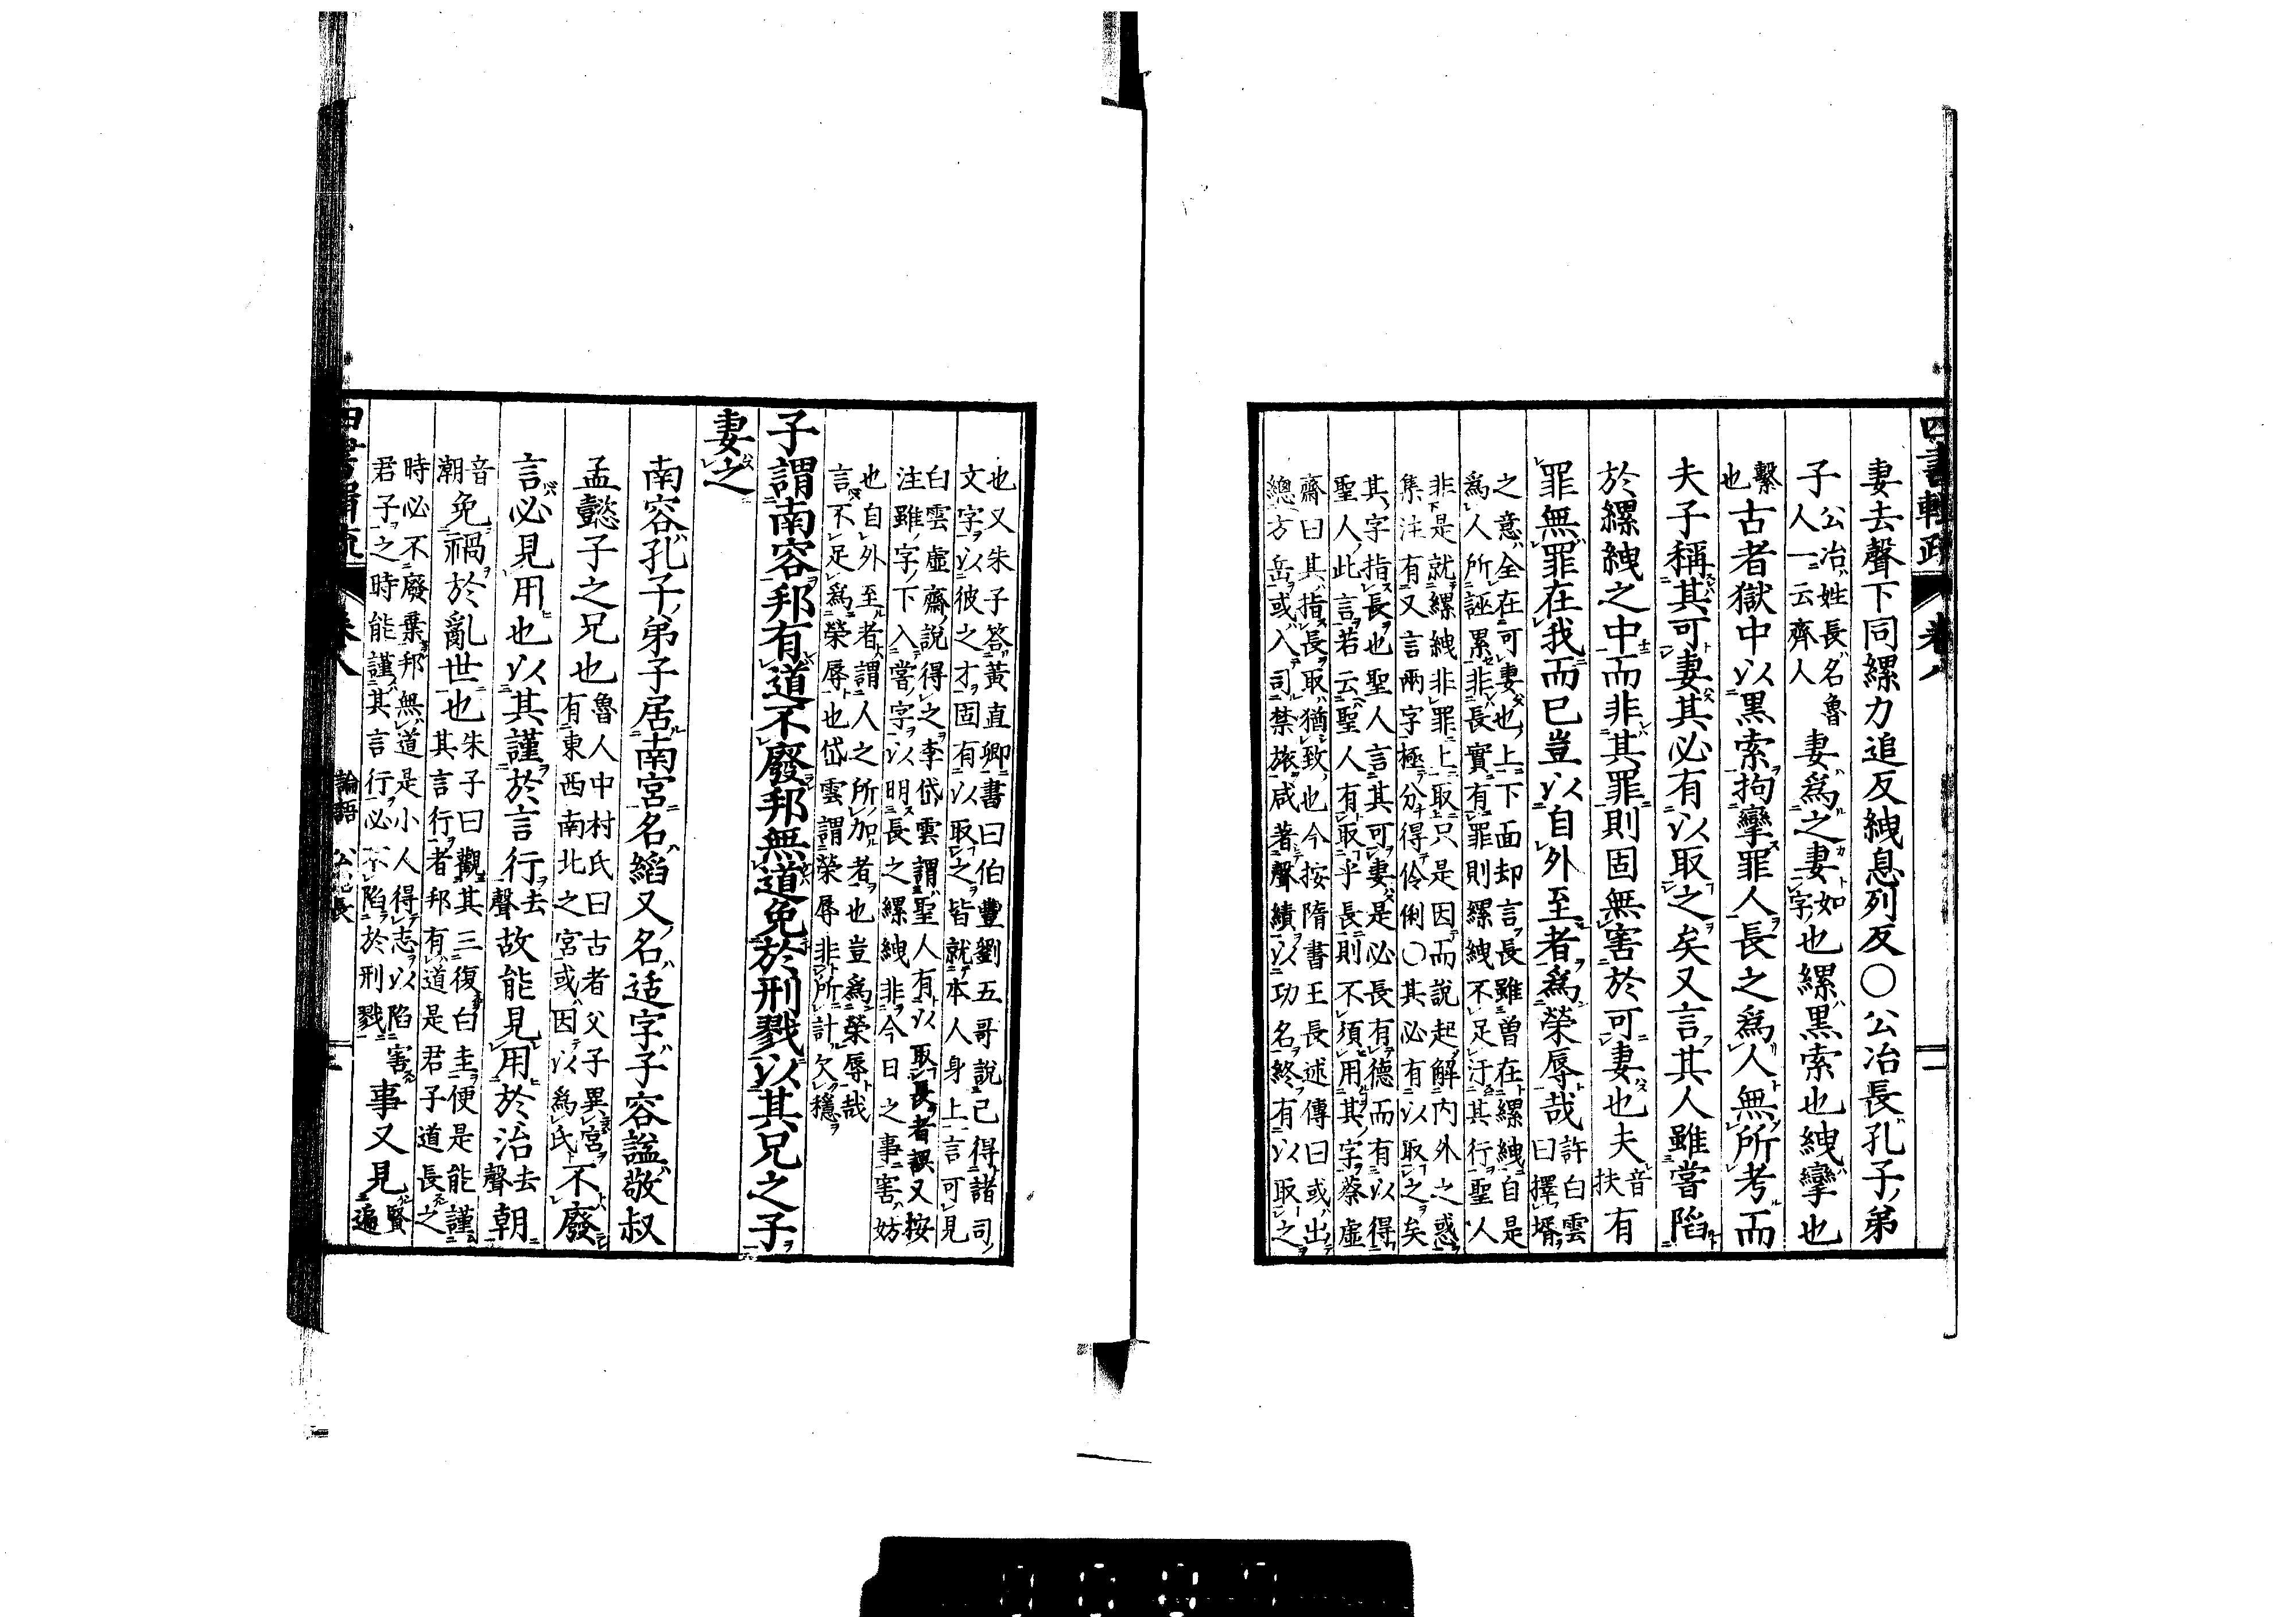 四書輯疏 卷八
妻去聲下同縲力追反絏息列反〇公冶長孔子弟
子公冶姓長名魯人一云齊人妻爲之妻如字也縲黑索也絏攣也
繫也古者獄中以黑索拘攣罪人長之爲人無所考而
夫子稱其可妻其必有以取之矣又言其人雖嘗陷
於縲絏之中而非其罪則固無害於可妻也夫音扶有
罪無罪在我而已豈以自外至者爲榮辱哉許白雲曰擇壻
之意全在可妻也上下面却言長雖曾在縲絏自是
爲人所誣累非長實有罪則縲絏不足汙其行聖人
非是就縲絏非罪上取只是因而說起解内外之惑
集注有又言兩字極分得伶俐〇其必有以取之矣
其字指長也聖人言其可妻是必長有德而有以得
聖人此言若云聖人有取乎長則不須用其字蔡虛
齋曰其指長取猶致也今按隋書王長述傳曰或出
總方岳或入司禁旅咸著聲績以功名終有以取之
也又朱子答黃直卿書曰伯豐劉五哥說己得諸司
文字以彼之才固有以取之皆就本人身上言可見
白雲虛齋說得之李岱雲謂聖人有以取長者誤又按
注雖字下入嘗字以明長之縲絏非今日之事害妨
也自外至者謂人之所加者也豈爲榮辱哉
言不足爲榮辱也岱雲謂榮辱非所計欠穩
子謂南容邦有道不廢邦無道免於刑戮以其兄之子
妻之
南容孔子弟子居南宮名縚又名适字子容諡敬叔
孟懿子之兄也魯人中村氏曰古者父子異宮有東西南北之宮或因以爲氏不廢
言必見用也以其謹於言行去聲故能見用於治去聲朝
音潮免禍於亂世也朱子曰觀其三復白圭便是能謹其言行者邦有道是君子道長之
時必不廢棄邦無道是小人得志以陷害
君子之時能謹其言行必不陷於刑戮事又見賢遍
論語 公冶長 三